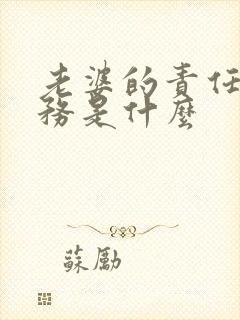 老婆的責任
務是什麼
蘇勵